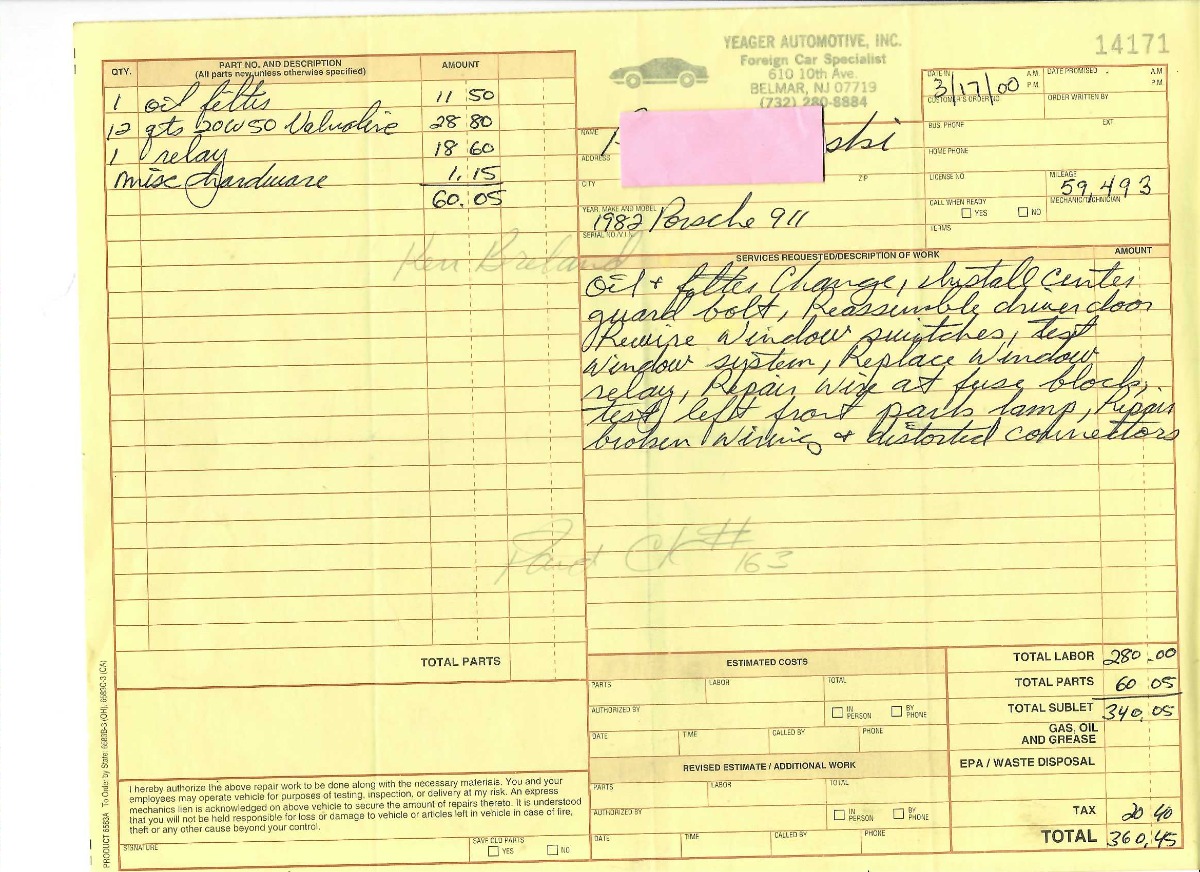 YEAGER AUTOMOTIVE, INC.
Foreign Car Specialist
610 10th Ave.
BELMAR, NJ 07719
(732) 280-8884
14171
QTY. PART NO. AND DESCRIPTION AMOUNT
(All parts new unless otherwise specified)
1 oil filter 11 50
12 qts 20W50 Valvoline 28 80
1 relay 18 60
misc hardware 1.15
60.05
TOTAL PARTS
DATE IN 3/17/00 A.M. P.M. DATE PROMISED A.M. P.M.
CUSTOMER'S ORDER NO. ORDER WRITTEN BY
NAME ski
BUS. PHONE EXT.
ADDRESS
HOME PHONE
CITY ZIP
LICENSE NO. MILEAGE 59,493
YEAR, MAKE AND MODEL 1982 Porsche 911
CALL WHEN READY YES NO MECHANIC/TECHNICIAN
SERIAL NO./V.I.N.
TERMS
Ken Breland
SERVICES REQUESTED/DESCRIPTION OF WORK AMOUNT
Oil + filter Change, Install center
guard bolt, Reassemble driver door
Rewire window switches, test
window system, Replace window
relay, Repair wire at fuse block,
test left front park lamp, Repair
broken wiring & distorted connectors
Paid Ck# 163
ESTIMATED COSTS
PARTS LABOR TOTAL
AUTHORIZED BY IN PERSON BY PHONE
DATE TIME CALLED BY PHONE
REVISED ESTIMATE / ADDITIONAL WORK
PARTS LABOR TOTAL
AUTHORIZED BY IN PERSON BY PHONE
DATE TIME CALLED BY PHONE
TOTAL LABOR 280.00
TOTAL PARTS 60 05
TOTAL SUBLET 340.05
GAS, OIL AND GREASE
EPA / WASTE DISPOSAL
TAX 20 40
TOTAL 360.45
I hereby authorize the above repair work to be done along with the necessary materials. You and your
employees may operate vehicle for purposes of testing, inspection, or delivery at my risk. An express
mechanics lien is acknowledged on above vehicle to secure the amount of repairs thereto. It is understood
that you will not be held responsible for loss or damage to vehicle or articles left in vehicle in case of fire,
theft or any other cause beyond your control.
SIGNATURE SAVE OLD PARTS YES NO
PRODUCT 6583A To Order by State: 6583B-3 (OH), 6583C-3 (CA)